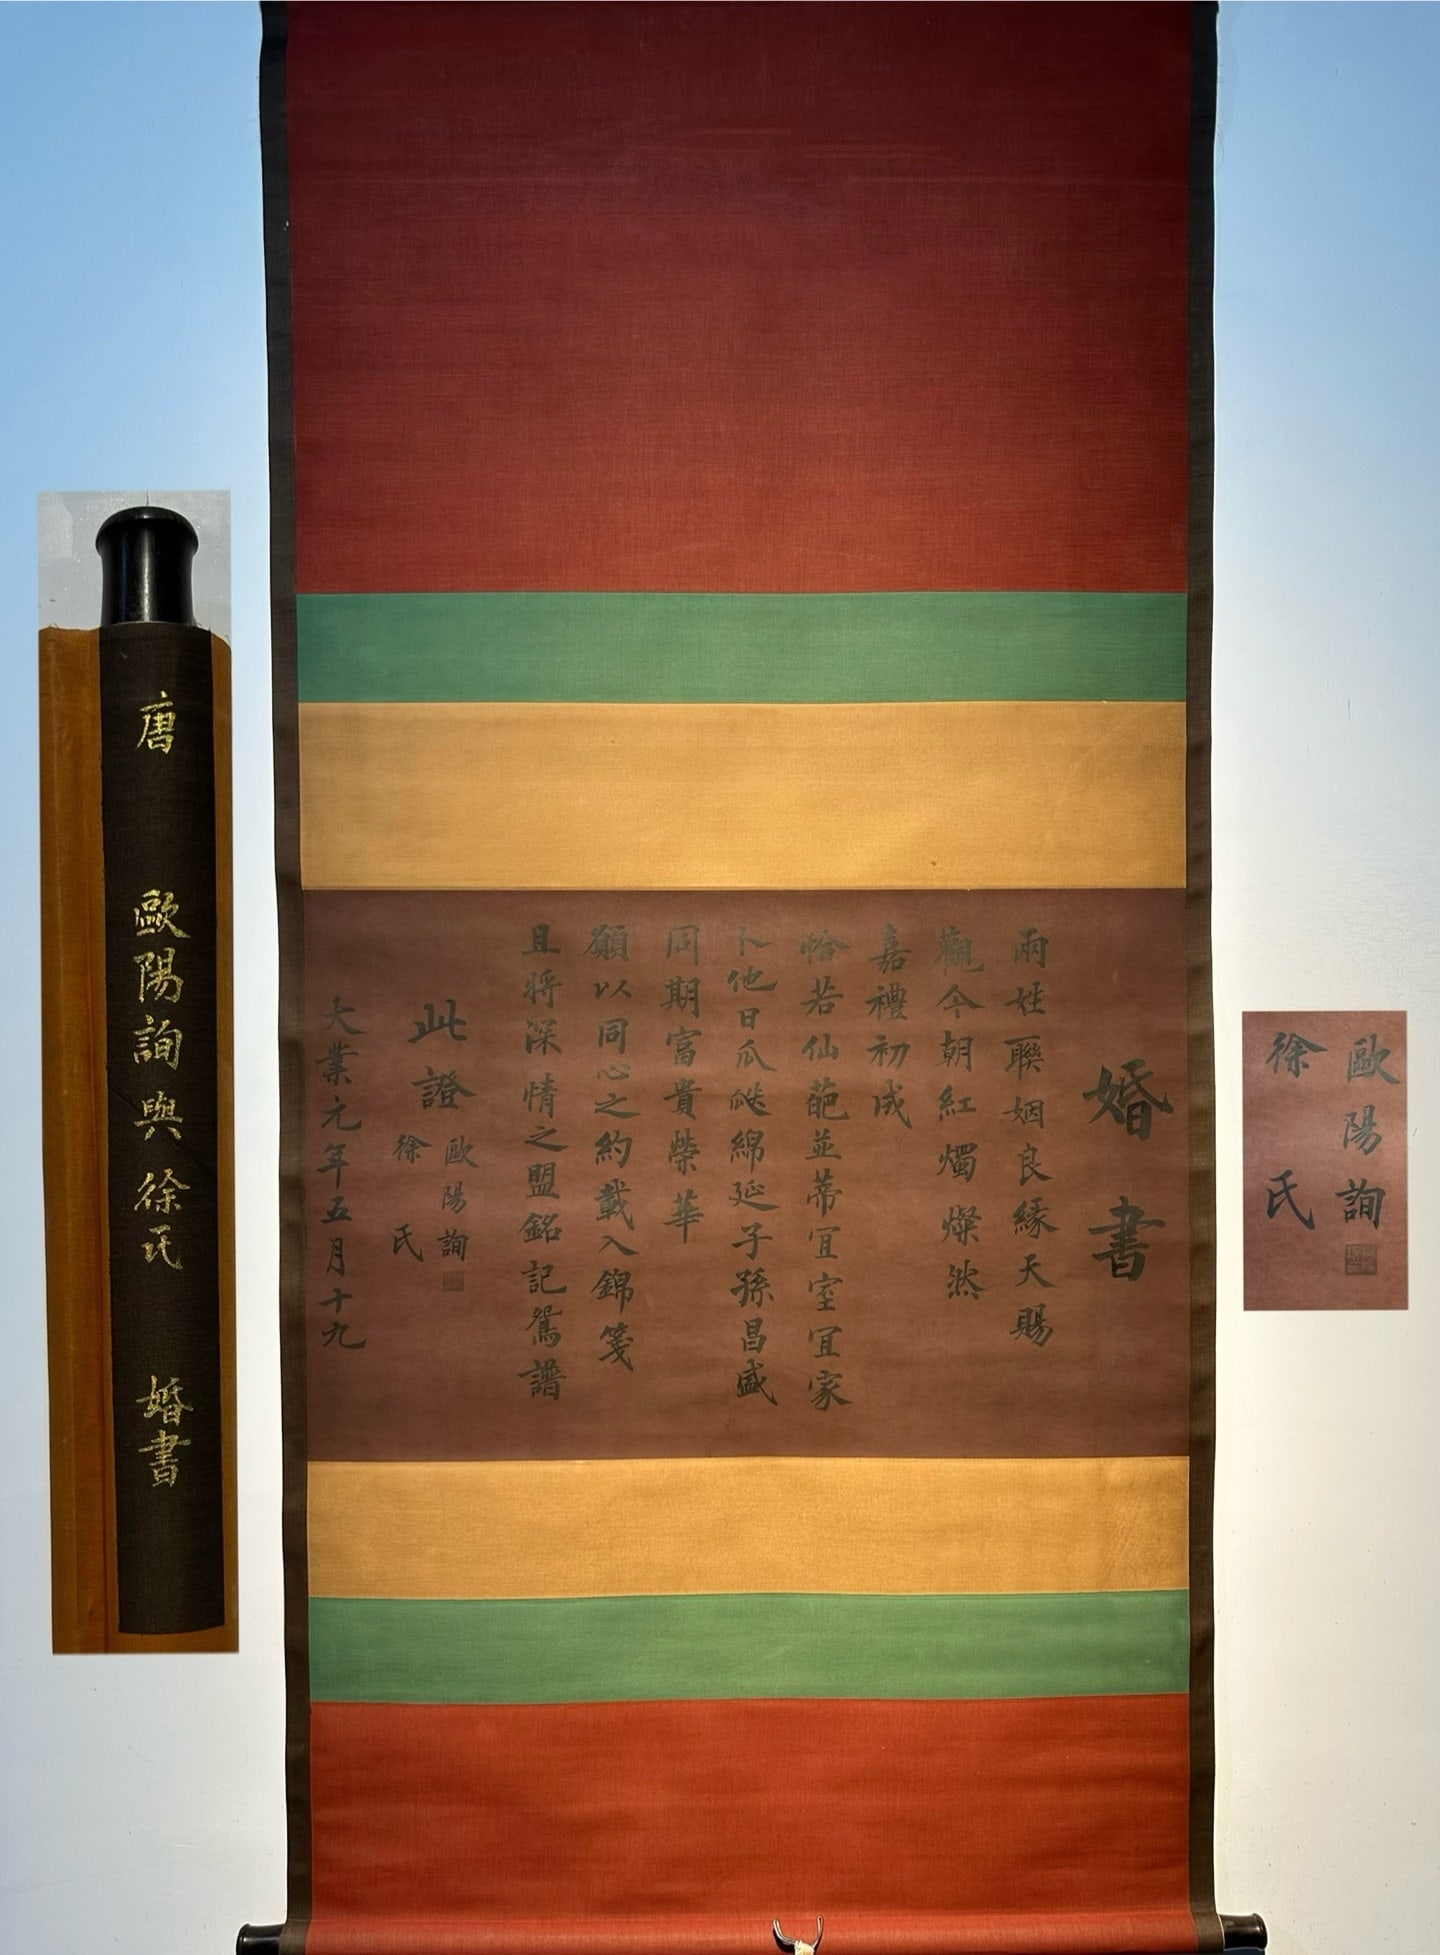 唐 歐陽詢與徐氏 婚書
婚書
兩姓聯姻良緣天賜
觀今朝紅燭燦然
嘉禮初成
恰若仙葩並蒂宜室宜家
卜他日瓜瓞綿延子孫昌盛
同期富貴榮華
願以同心之約載入錦箋
且將深情之盟銘記鴛譜
此證
歐陽詢
徐氏
大業元年五月十九
歐陽詢
徐氏